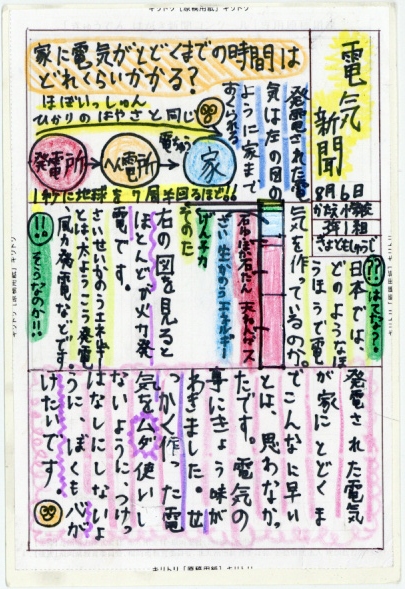 キリトリ [原稿用紙] キリトリ
電気
新聞
8月6日
3年1組
家に電気がとどくまでの時間は
どれくらいかかる?
ほぼいっしゅん
ひかりのはやさと同じ
発電所
へん電所
電ちゅう
家
1秒に地球を7周半回るほど!!
発電された電
気は左の図の
ように家まで
おくられる
??はてな?
日本では、
どのようなほ
うほうで電
気を作っているのか。
石ゆ
石たん
天ねんガス
さい生かのうエネルギー
げん子力
そのた
右の図を見ると
ほとんどが火力発
電です。
さいせいかのうエネルギー
とは、太ようこう発電
風力発電などです。
!!そうなのか!!
発電された電気
が家にとどくま
でこんなに早い
とは、思わなかっ
たです。電気の
事にきょう味が
わきました。せ
っかく作った電
気をムダ使いし
ないようにつけっ
ぱなしにしないよ
うにぼくも心が
けたいです。
キリトリ [原稿用紙] キリトリ